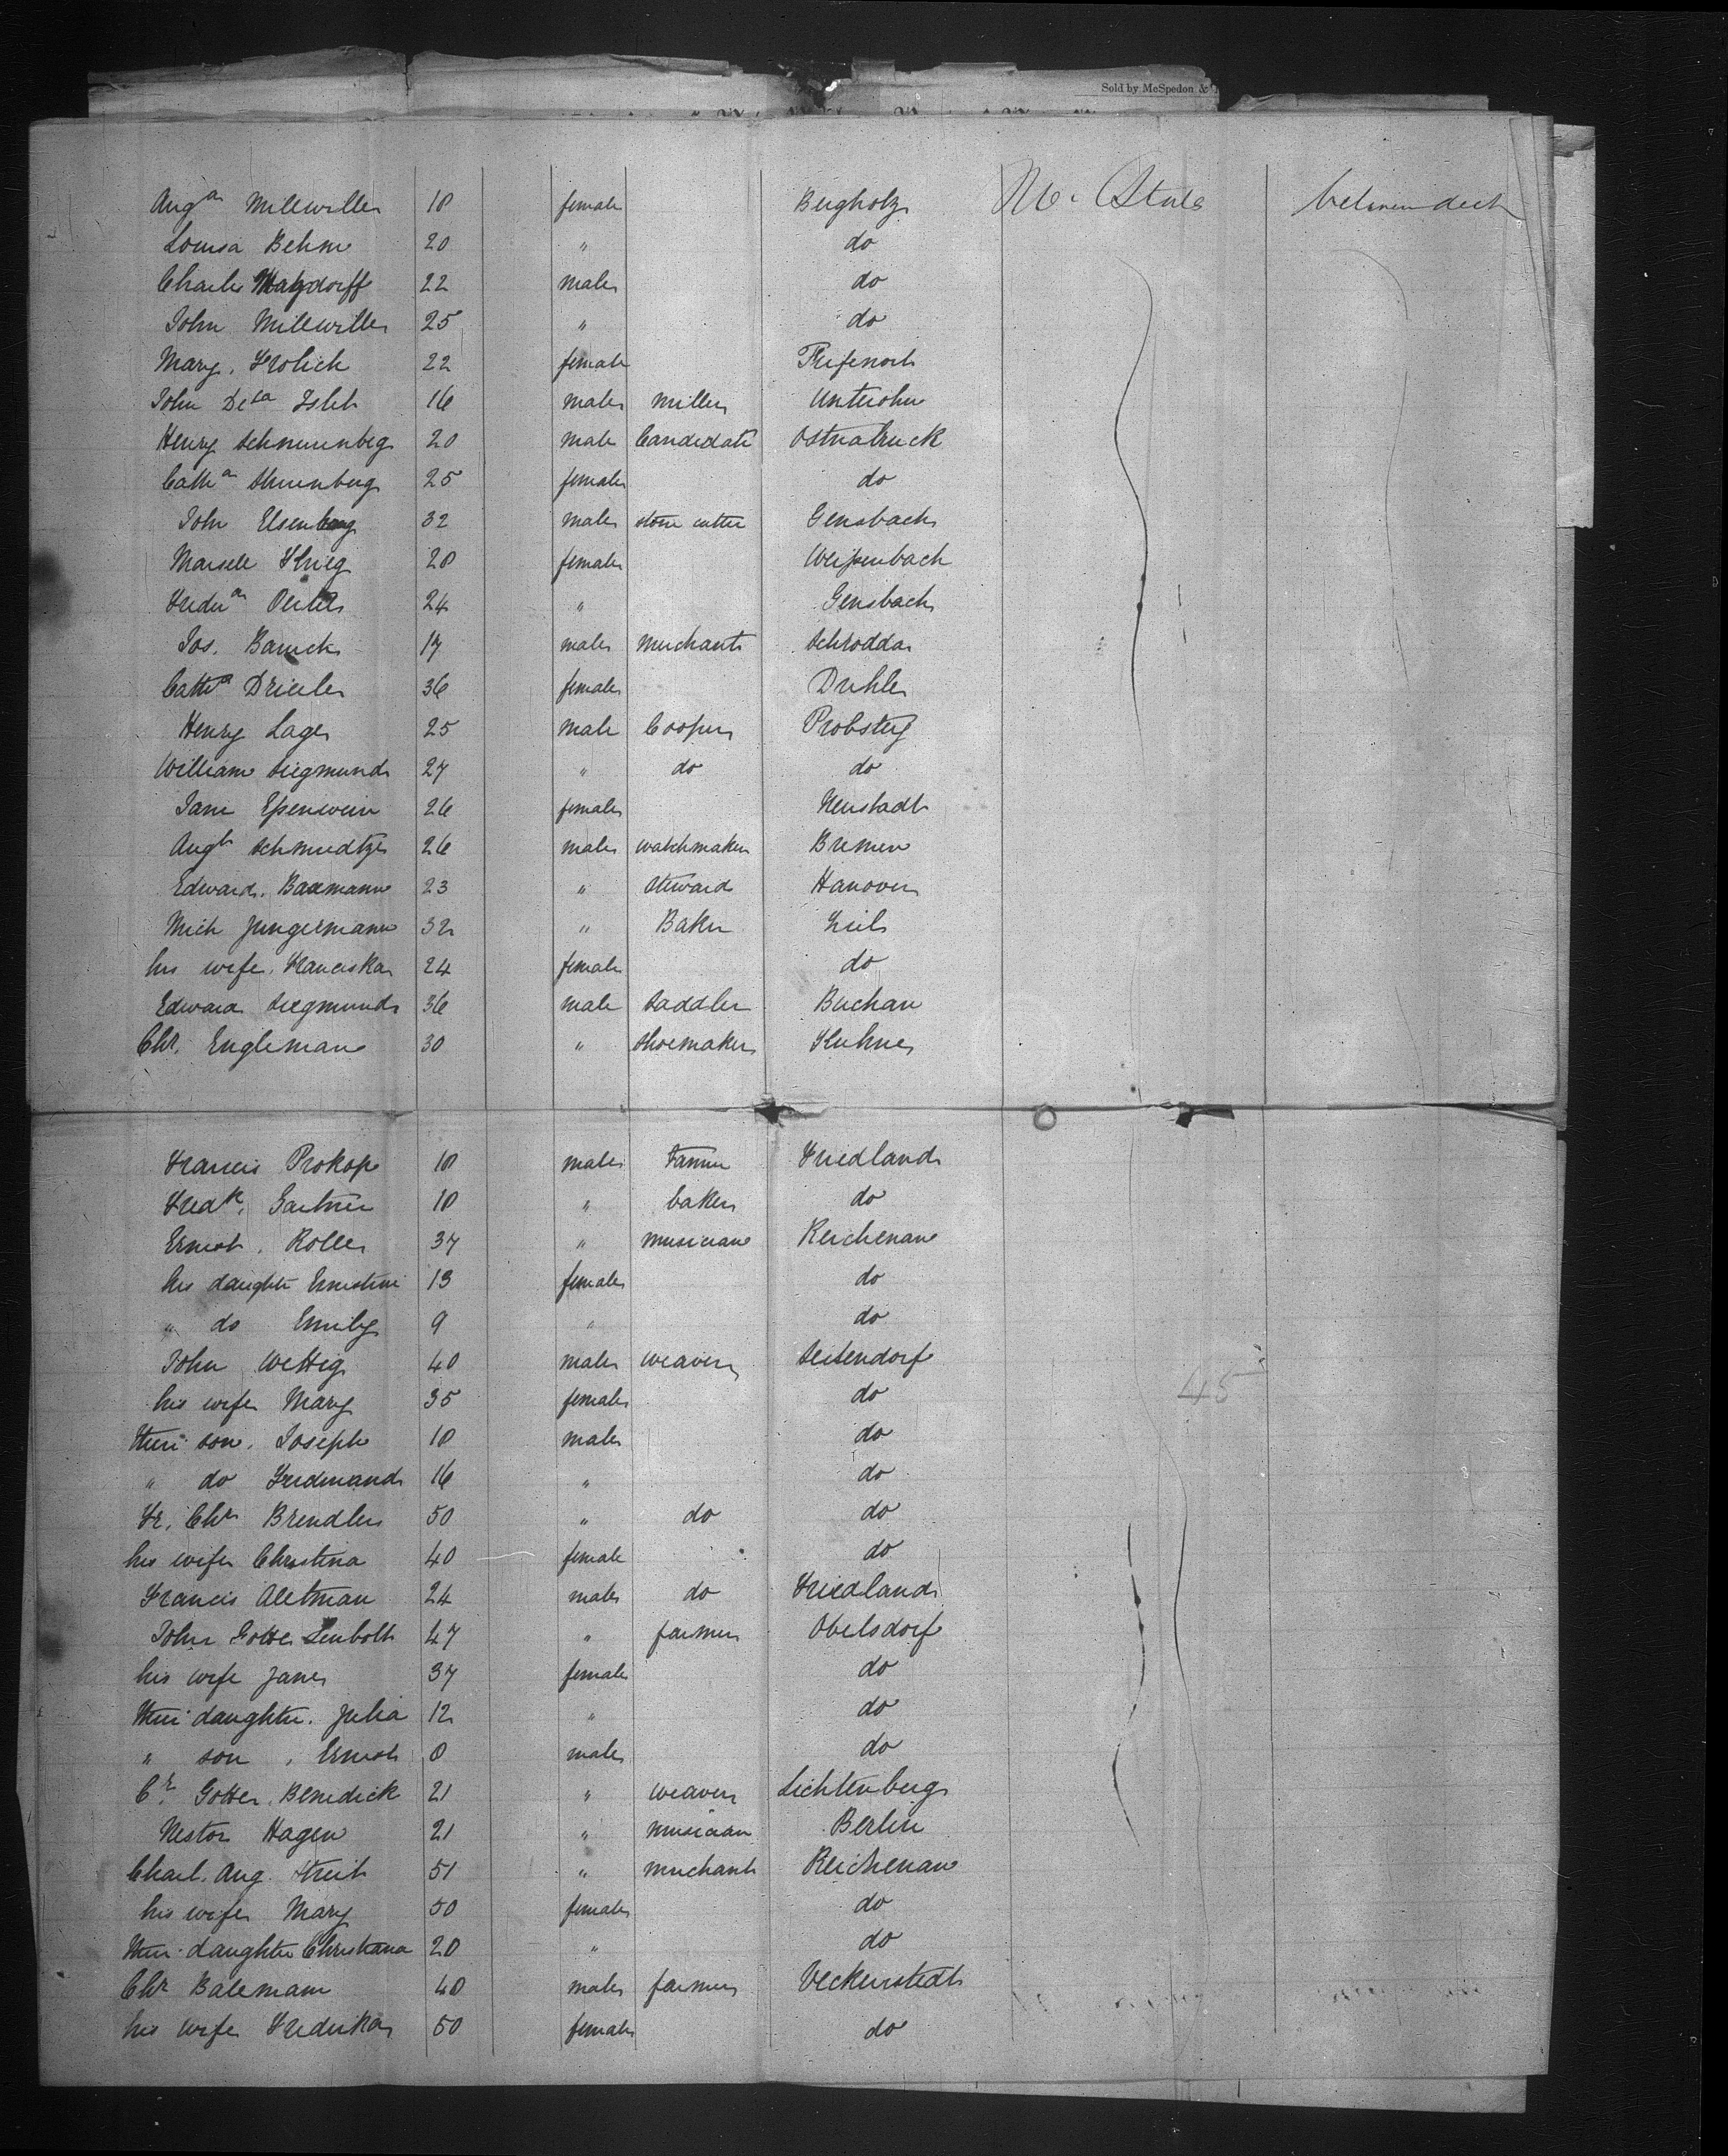 Sold by McSpedon &
Aug^a Millwiller 18 female Bergholz U. States between deck
Louisa Behm 20 " do
Charles Matzdorff 22 male do
John Millwiller 25 " do
Mary. Frolich 22 female
John Isleb 16 male miller
Henry Schnuenberg 20 male Candidate Ostnabruck
Cath^a 25 female do
John Elsenberg 32 male stone cutter Gensbach
Krieg 28 female Weissenbach
Freder^a 24 " Gensbach
Jos. Baruch 17 male merchant Schrodda
Cath^a 36 female Duhle
Henry Lage 25 male Cooper Probsteg
William Siegmund 27 " do do
Jane Essenwein 26 female Neustadt
Augt 26 male watchmaker Bremen
Edward. Baxmann 23 " Steward Hanover
Mich Jungermann 32 " Baker Zeil
his wife. Franciska 24 female do
Edward Siegmund 36 male Saddler Buchau
Chr. Engleman 30 " Shoemaker Kuhne
Francis Prokop 18 male Friedland
Fredk. Gartner 18 " baker do
Ernest. Roller 37 " musician Reichenau
his daughter Ernestine 13 female do
" do Emily 9 " do
John Wettig 40 male weaver Seitendorf
his wife Mary 35 female do 45
their son. Joseph 18 male do
" do Ferdinand 16 " do
Fr. Chr Brendler 50 " do do
his wife Christina 40 female do
Francis Altman 24 male do Friedland
John Gottl. 47 " farmer Obelsdorf
his wife Jane 37 female do
their daughter. Julia 12 " do
" son. Ernest 8 male do
Cr. Gotter. Benedick 21 " weaver Lichtenberg
Nestor Hagen 21 " musician Berlin
Charl. Aug. Streit 51 " merchant Reichenau
his wife Mary 50 female do
their daughter Christiana 20 " do
Chr Balemann 40 male farmer Veckenstedt
his wife Frederika 50 female do